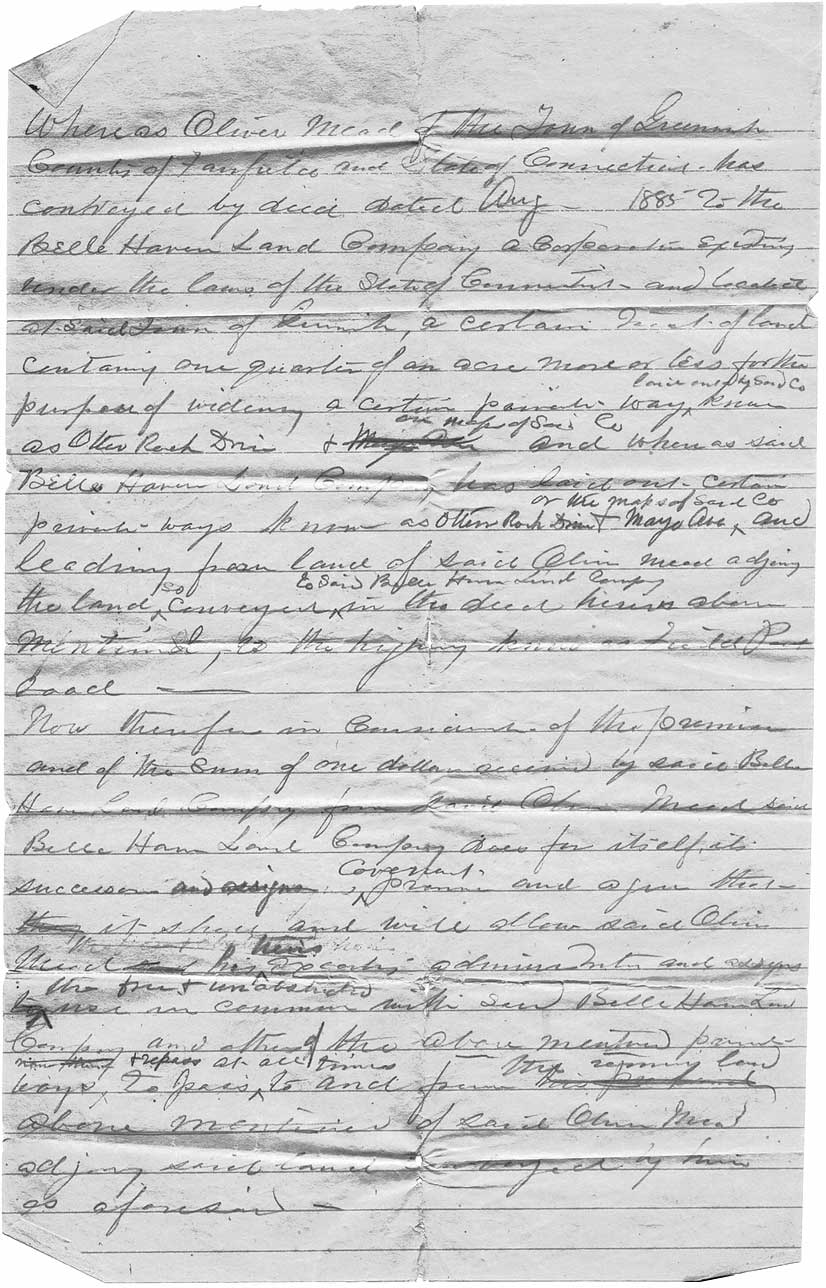 Whereas Oliver Mead of the Town of Greenwich
County of Fairfield and State of Connecticut has
conveyed by deed dated Aug 1885 to the
Belle Haven Land Company a Corporation Existing
under the laws of the State of Connecticut and located
at said Town of Greenwich, a certain tract of land
containing one quarter of an acre more or less for the
laid out by said Co
purpose of widening a certain private way, known
on map of said Co
as Otter Rock Drive & and whereas said
Belle Haven Land Company, has laid out certain
on the maps of said Co
private ways known as Otter Rock Drive & Mayo Ave, and
leading from land of said Oliver Mead adjoing
so to said Belle Haven Land Company
the land conveyed in the deed herein above
Mentioned, to the highway known as Field Point
Road —
Now therefore in Consideration of the premises
and of the Sum of one dollar received by said Belle
Haven Land Company from said Oliver Mead said
Belle Haven Land Company does for itself, its
Covenant
successors and assigns, promise and agree that
they it shall and will allow said Oliver
heirs
Mead and his Executors administrators and assigns
the free & unobstructed
use in common with said Belle Haven Land
Company and others of the above mentioned private
& repass at all times the remaining land
ways, to pass to and from
above mentioned of said Oliver Mead
adjoing said land conveyed by him
as aforesaid —